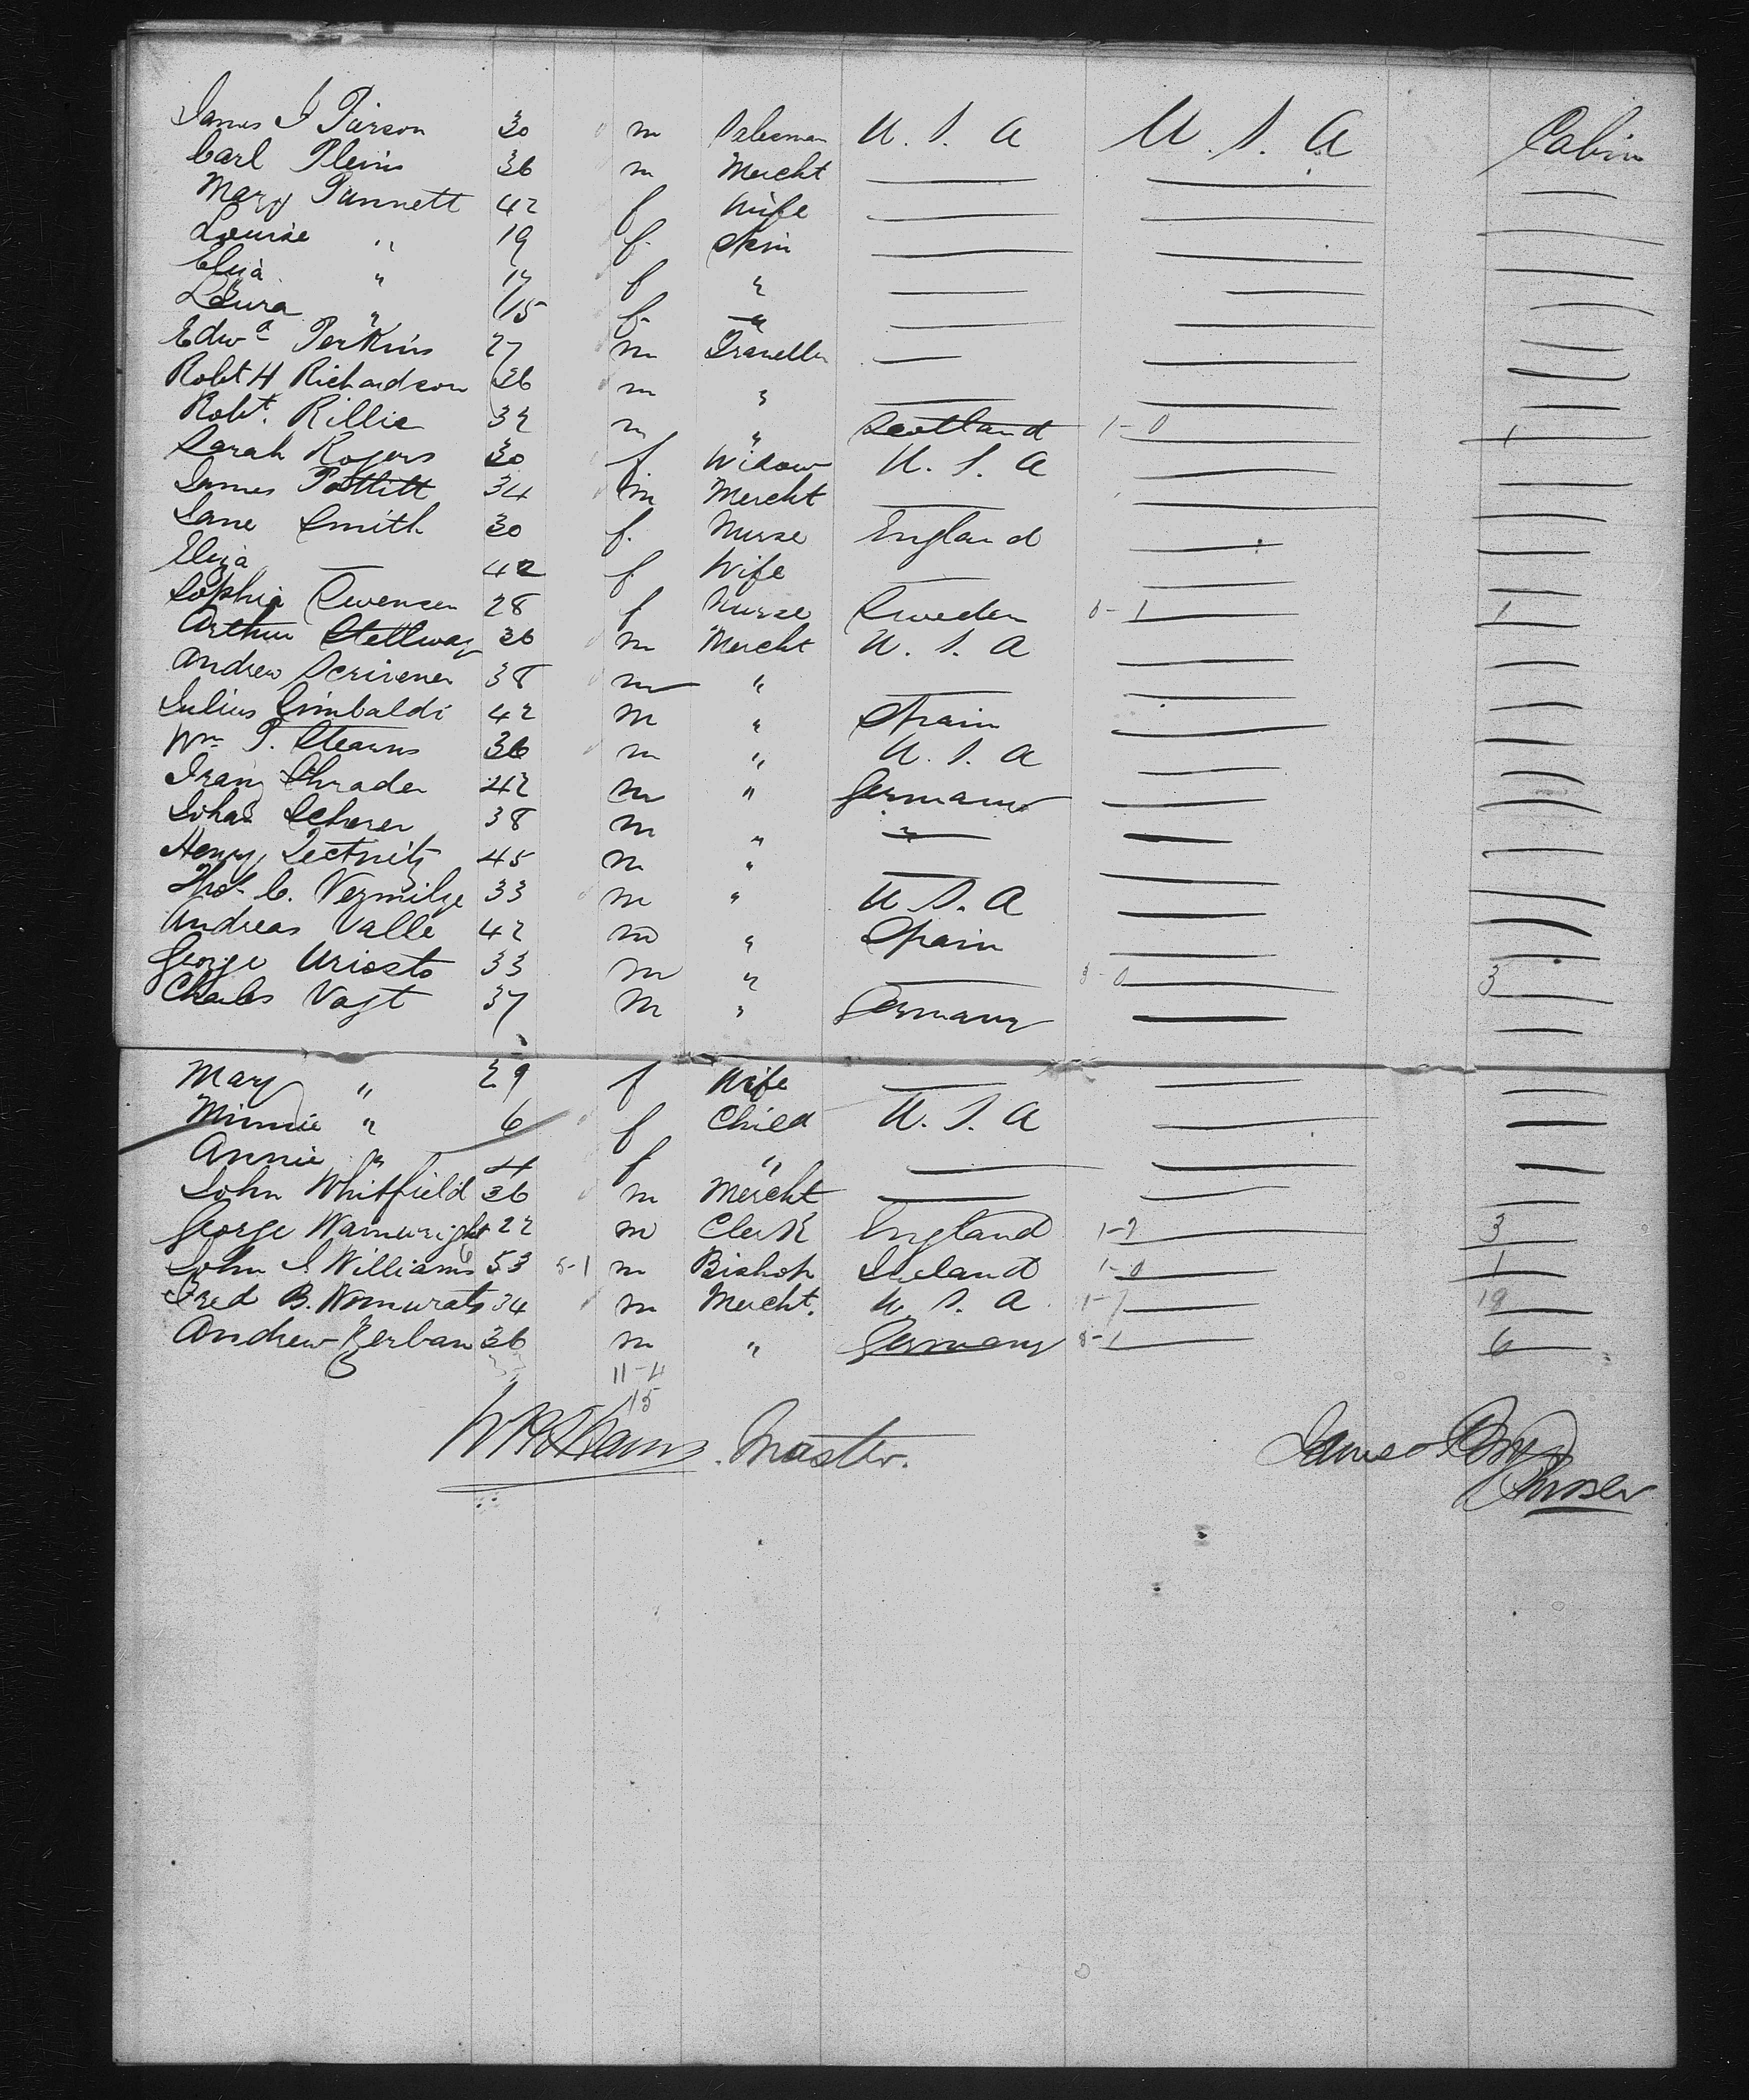 James J Pierson 30 m Salesman U. S. A U. S. A Cabin
Carl Pleins 36 m Mercht — — —
Mary Pannett 42 f Wife — — —
Louise " 19 f. Spin — — —
Eliza " 17 f " — — —
Laura " 15 f. " — — —
Edwd Perkins 27 m Traveller — — —
Robt H Richardson 36 m " — — —
Robt. Rillie 32 m " Scotland 1-0 — 1
Sarah Rogers 30 f. Widow U. S. A — —
James Pottitt 34 m Mercht — — —
Jane Smith 30 f. Nurse England — —
Eliza — 42 f. Wife — — —
Sophia Swensen 28 f Nurse Sweden 0-1 — 1
Arthur Stellway 36 m Mercht U. S. A — —
Andrew Scrivener 38 m " — — —
Julius Gimbaldi 42 m " Spain — —
Wm T. Stearns 36 m " U. S. A — —
Franz Shrader 42 m " Germany — —
Johan Scherer 38 m " — — —
Henry 45 m " — — —
Thos C. Vermilye 33 m " U S. A — —
Andreas Valle 42 m " Spain — —
George Uriosto 33 m " — 3-0 — 3
Charles Vogt 37 m " Germany — —
Mary " 29 f Wife — — —
Minnie " 6 f Child U. S. A — —
Annie " 4 f " — — —
John Whitfield 36 m Mercht — — —
George Wainwright 22 m Clerk England 1-2 — 3
John J Williams 53 5-1 m Bishop Ireland 1-0 — 1
Fred B. 34 m Mercht. U. S. A — 19
Andrew Zerban 36 m " Germany 5-1 — 6
11-4
15
Master. James
Purser